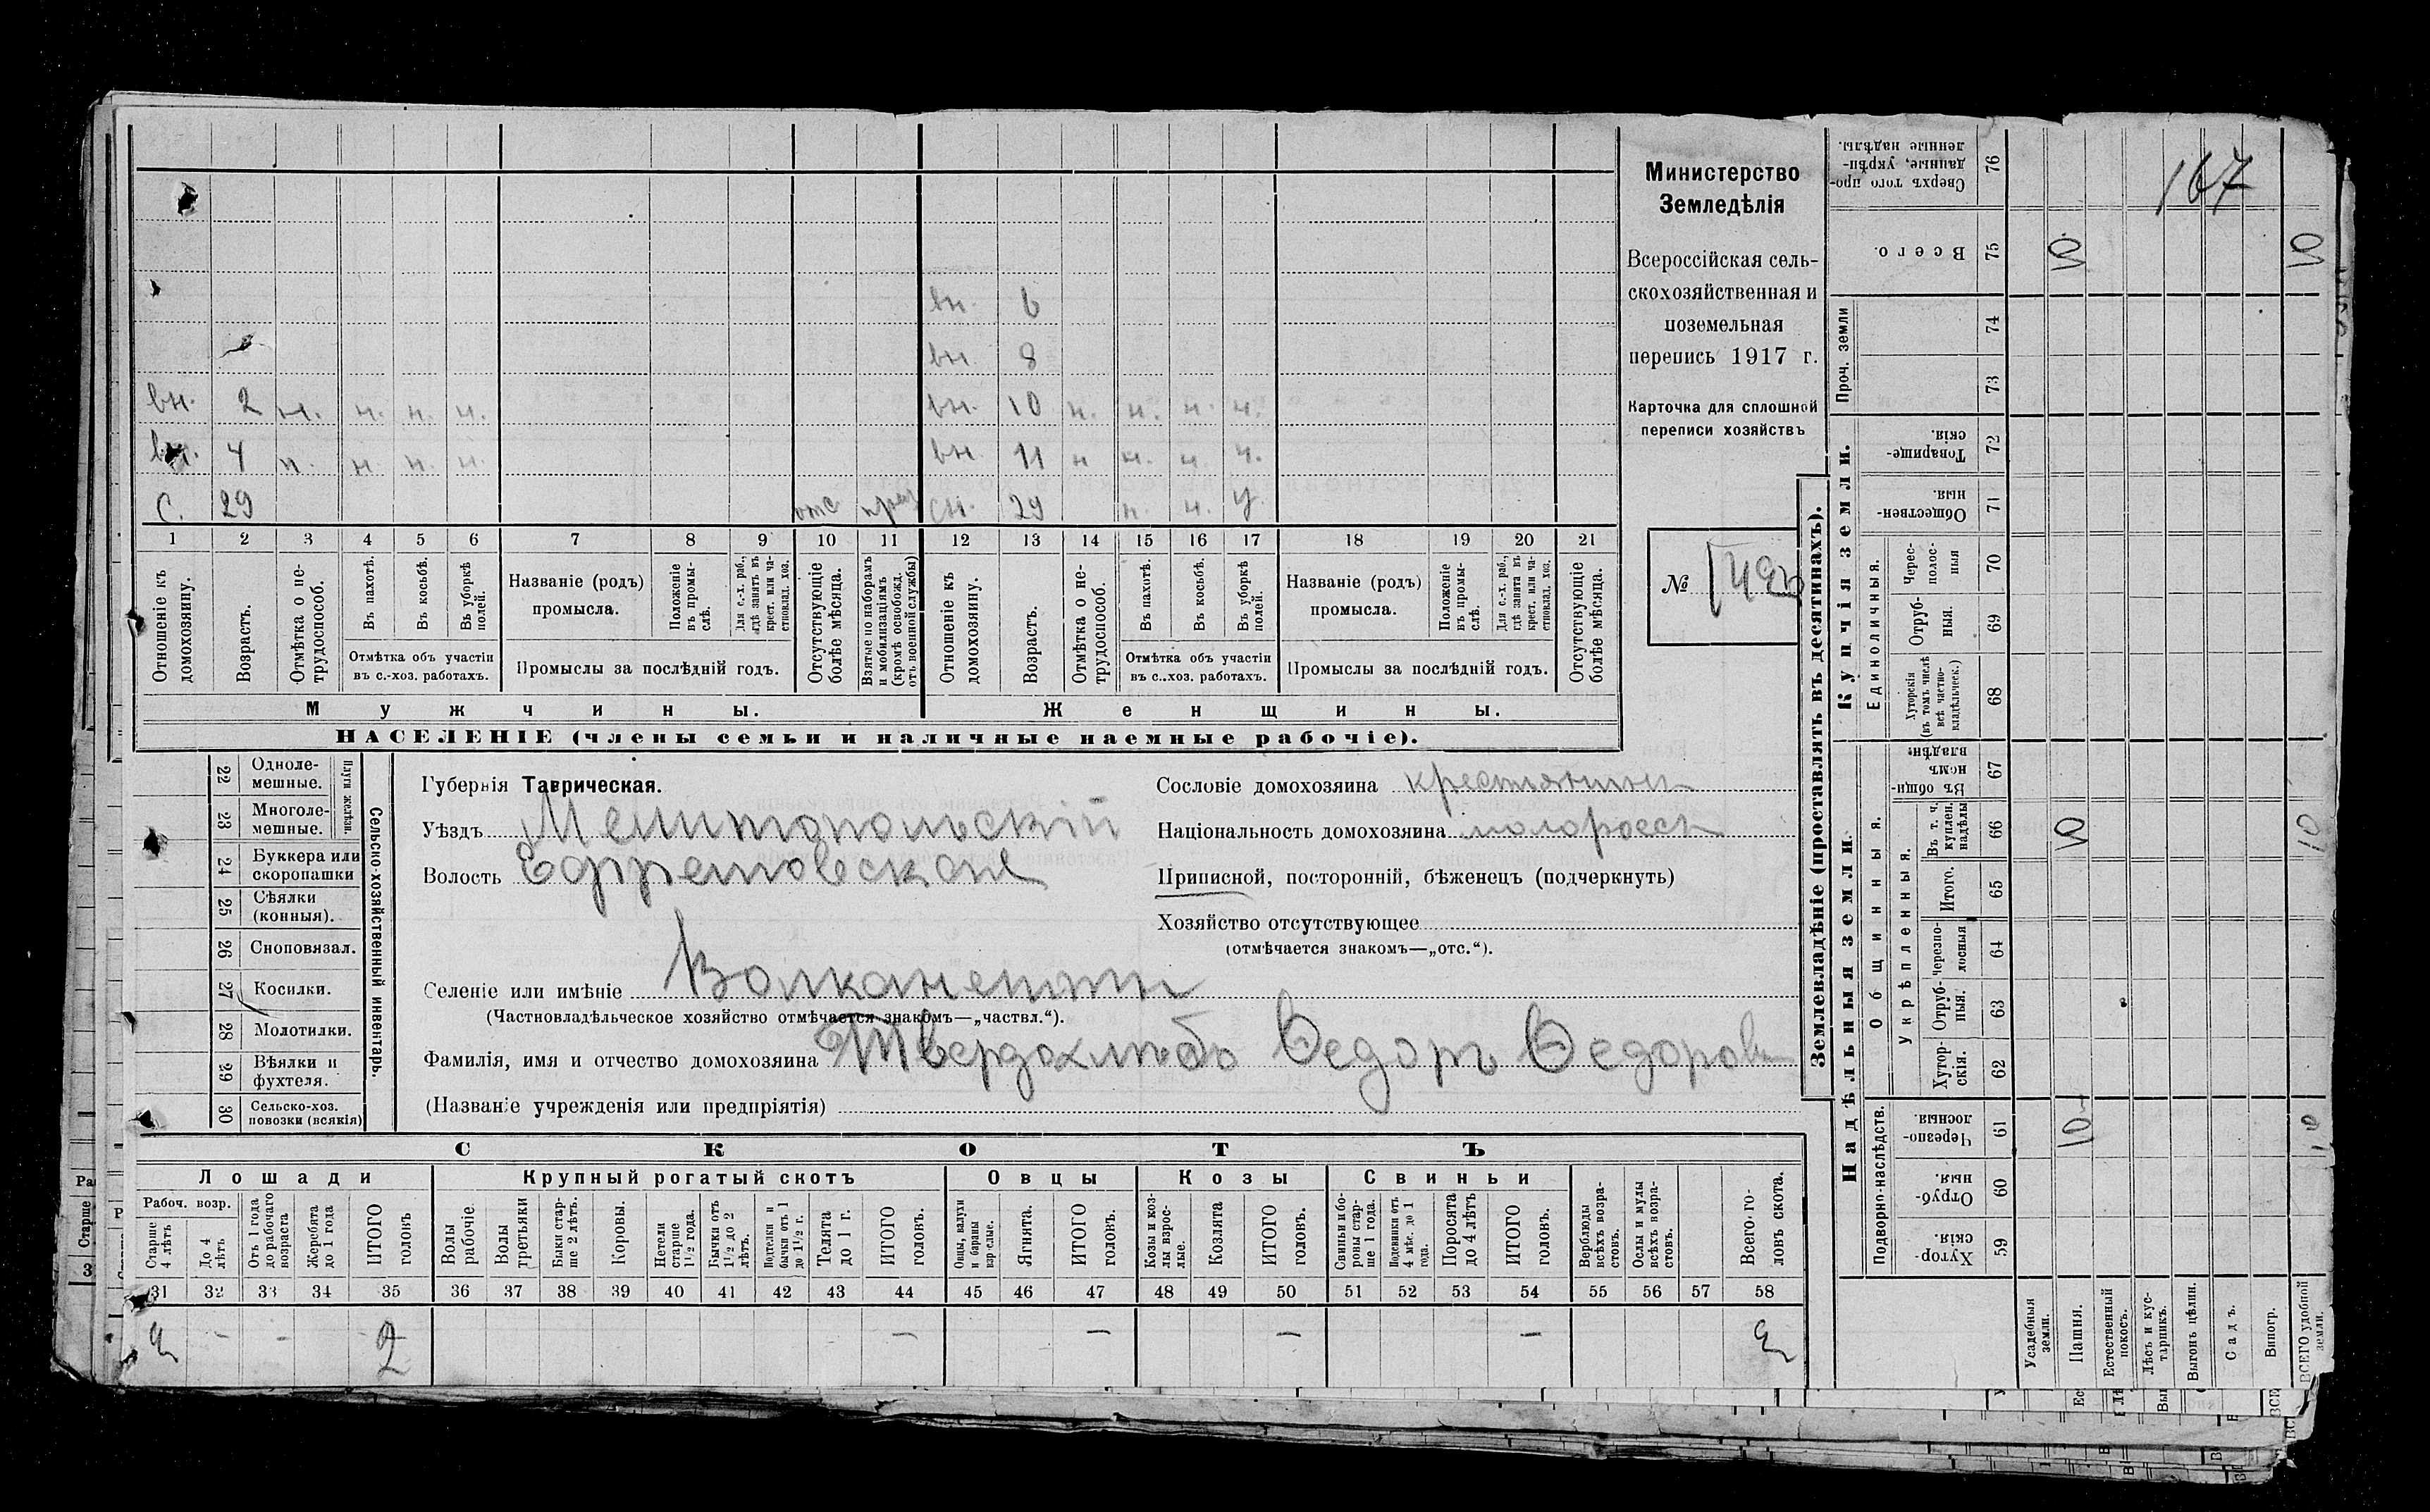 167
Министерство
Земледѣлія
Всероссійская сель-
скохозяйственная и
поземельная
перепись 1917 г.
Карточка для сплошной
переписи хозяйствъ
№
вн. 6
вн. 8
вн. 2 н. н. н. н. вн. 10 н. н. н. н.
вн. 4 н. н. н. н. вн. 11 н н. н. н.
С. 29 отс 29 н. н.
1 2 3 4 5 6 7 8 9 10 11 12 13 14 15 16 17 18 19 20 21
Отношеніе къ домохозяину.
Возрастъ.
Отмѣтка о не-трудоспособ.
Въ пахотѣ.
Въ косьбѣ.
Въ уборкѣ полей.
Отмѣтка объ участіи въ с.-хоз. работахъ.
Названіе (родъ) промысла.
Положеніе въ промы-слѣ.
Для с.-х. раб., гдѣ занятъ въ крест. или ча-стновлад. хоз.
Промыслы за послѣдній годъ.
Отсутствующіе болѣе мѣсяца.
Взятые по наборамъ и мобилизаціямъ (кромѣ освобожд. отъ военной службы)
Отношеніе къ домохозяину.
Возрастъ.
Отмѣтка о не-трудоспособ.
Въ пахотѣ.
Въ косьбѣ.
Въ уборкѣ полей.
Отмѣтка объ участіи въ с.-хоз. работахъ.
Названіе (родъ) промысла.
Положеніе въ промы-слѣ.
Для с.-х. раб., гдѣ занята въ крест. или ча-стновлад. хоз.
Промыслы за послѣдній годъ.
Отсутствующіе болѣе мѣсяца.
Мужчины. Женщины.
НАСЕЛЕНІЕ (члены семьи и наличные наемные рабочіе).
22 Одноле-мешные.
23 Многоле-мешные.
Плуги желѣзн.
24 Буккера или скоропашки
25 Сѣялки (конныя).
26 Сноповязал.
27 Косилки.
28 Молотилки.
29 Вѣялки и фухтеля.
30 Сельско-хоз. повозки (всякія)
Сельско-хозяйственный инвентарь.
Губернія Таврическая.
Уѣздъ Мелитопольскій
Волость Ефремовская
Селеніе или имѣніе Волканешты
(Частновладѣльческое хозяйство отмѣчается знакомъ—„частвл.“).
Фамилія, имя и отчество домохозяина Твердохлѣбъ Ѳедоръ Ѳедоров
(Названіе учрежденія или предпріятія)
Сословіе домохозяина крестьянинъ
Національность домохозяина малоросс
Приписной, посторонній, бѣженецъ (подчеркнуть)
Хозяйство отсутствующее
(отмѣчается знакомъ—„отс.“).
СКОТЪ
Лошади Крупный рогатый скотъ Овцы Козы Свиньи
Рабоч. возр.
Старше 4 лѣтъ
До 4 лѣтъ
Отъ 1 года до рабочаго возраста
Жеребята до 1 года
ИТОГО головъ
Волы рабочіе.
Волы третьяки
Быки стар-ше 2 лѣтъ.
Коровы.
Нетели старше 1 1/2 года.
Бычки отъ 1 1/2 до 2 лѣтъ.
Подтелки и бычки отъ 1 до 1 1/2 г.
Телята до 1 г.
ИТОГО головъ.
Овцы, валухи и бараны взрослые.
Ягнята.
ИТОГО головъ.
Козы и коз-лы взрос-лые.
Козлята
ИТОГО головъ.
Свиньи и бо-ровы стар-ше 1 года.
Подсвинки отъ 4 мѣс. до 1 года.
Поросята до 4 лѣтъ
ИТОГО головъ.
Верблюды всѣхъ возра-стовъ.
Ослы и мулы всѣхъ возра-стовъ.
Всего го-ловъ скота.
31 32 33 34 35 36 37 38 39 40 41 42 43 44 45 46 47 48 49 50 51 52 53 54 55 56 57 58
2 – – 2 – – – – 2
Землевладѣніе (проставлять въ десятинахъ).
Надѣльныя земли. Купчія земли. Проч. земли
Подворно-наслѣдств.
Общинныя.
Укрѣпленныя.
Единоличныя.
Сверхъ того про-данные, укрѣп-ленные надѣлы. 76
Всего. 75 10 10
74
73
Товарище-скія. 72
Обществен-ныя. 71
Черес-полос-ныя 70
Отруб-ныя. 69
Хуторскія (въ томъ числѣ всѣ частно-владѣльческ.) 68
Въ общи-номъ владѣн. 67
Въ т. ч. куплен. надѣлы 66 10 10
Итого. 65
Черезпо-лосныя 64
Отруб-ныя. 63
Хутор-скія. 62
Черезпо-лосныя 61 10 10
Отруб-ныя. 60
Хутор-скія. 59
Усадебныя земли.
Пашня.
Естественный покосъ.
Лѣсъ и кус-тарникъ.
Выгонъ цѣлин.
Садъ.
Виногр.
ВСЕГО удобной земли.